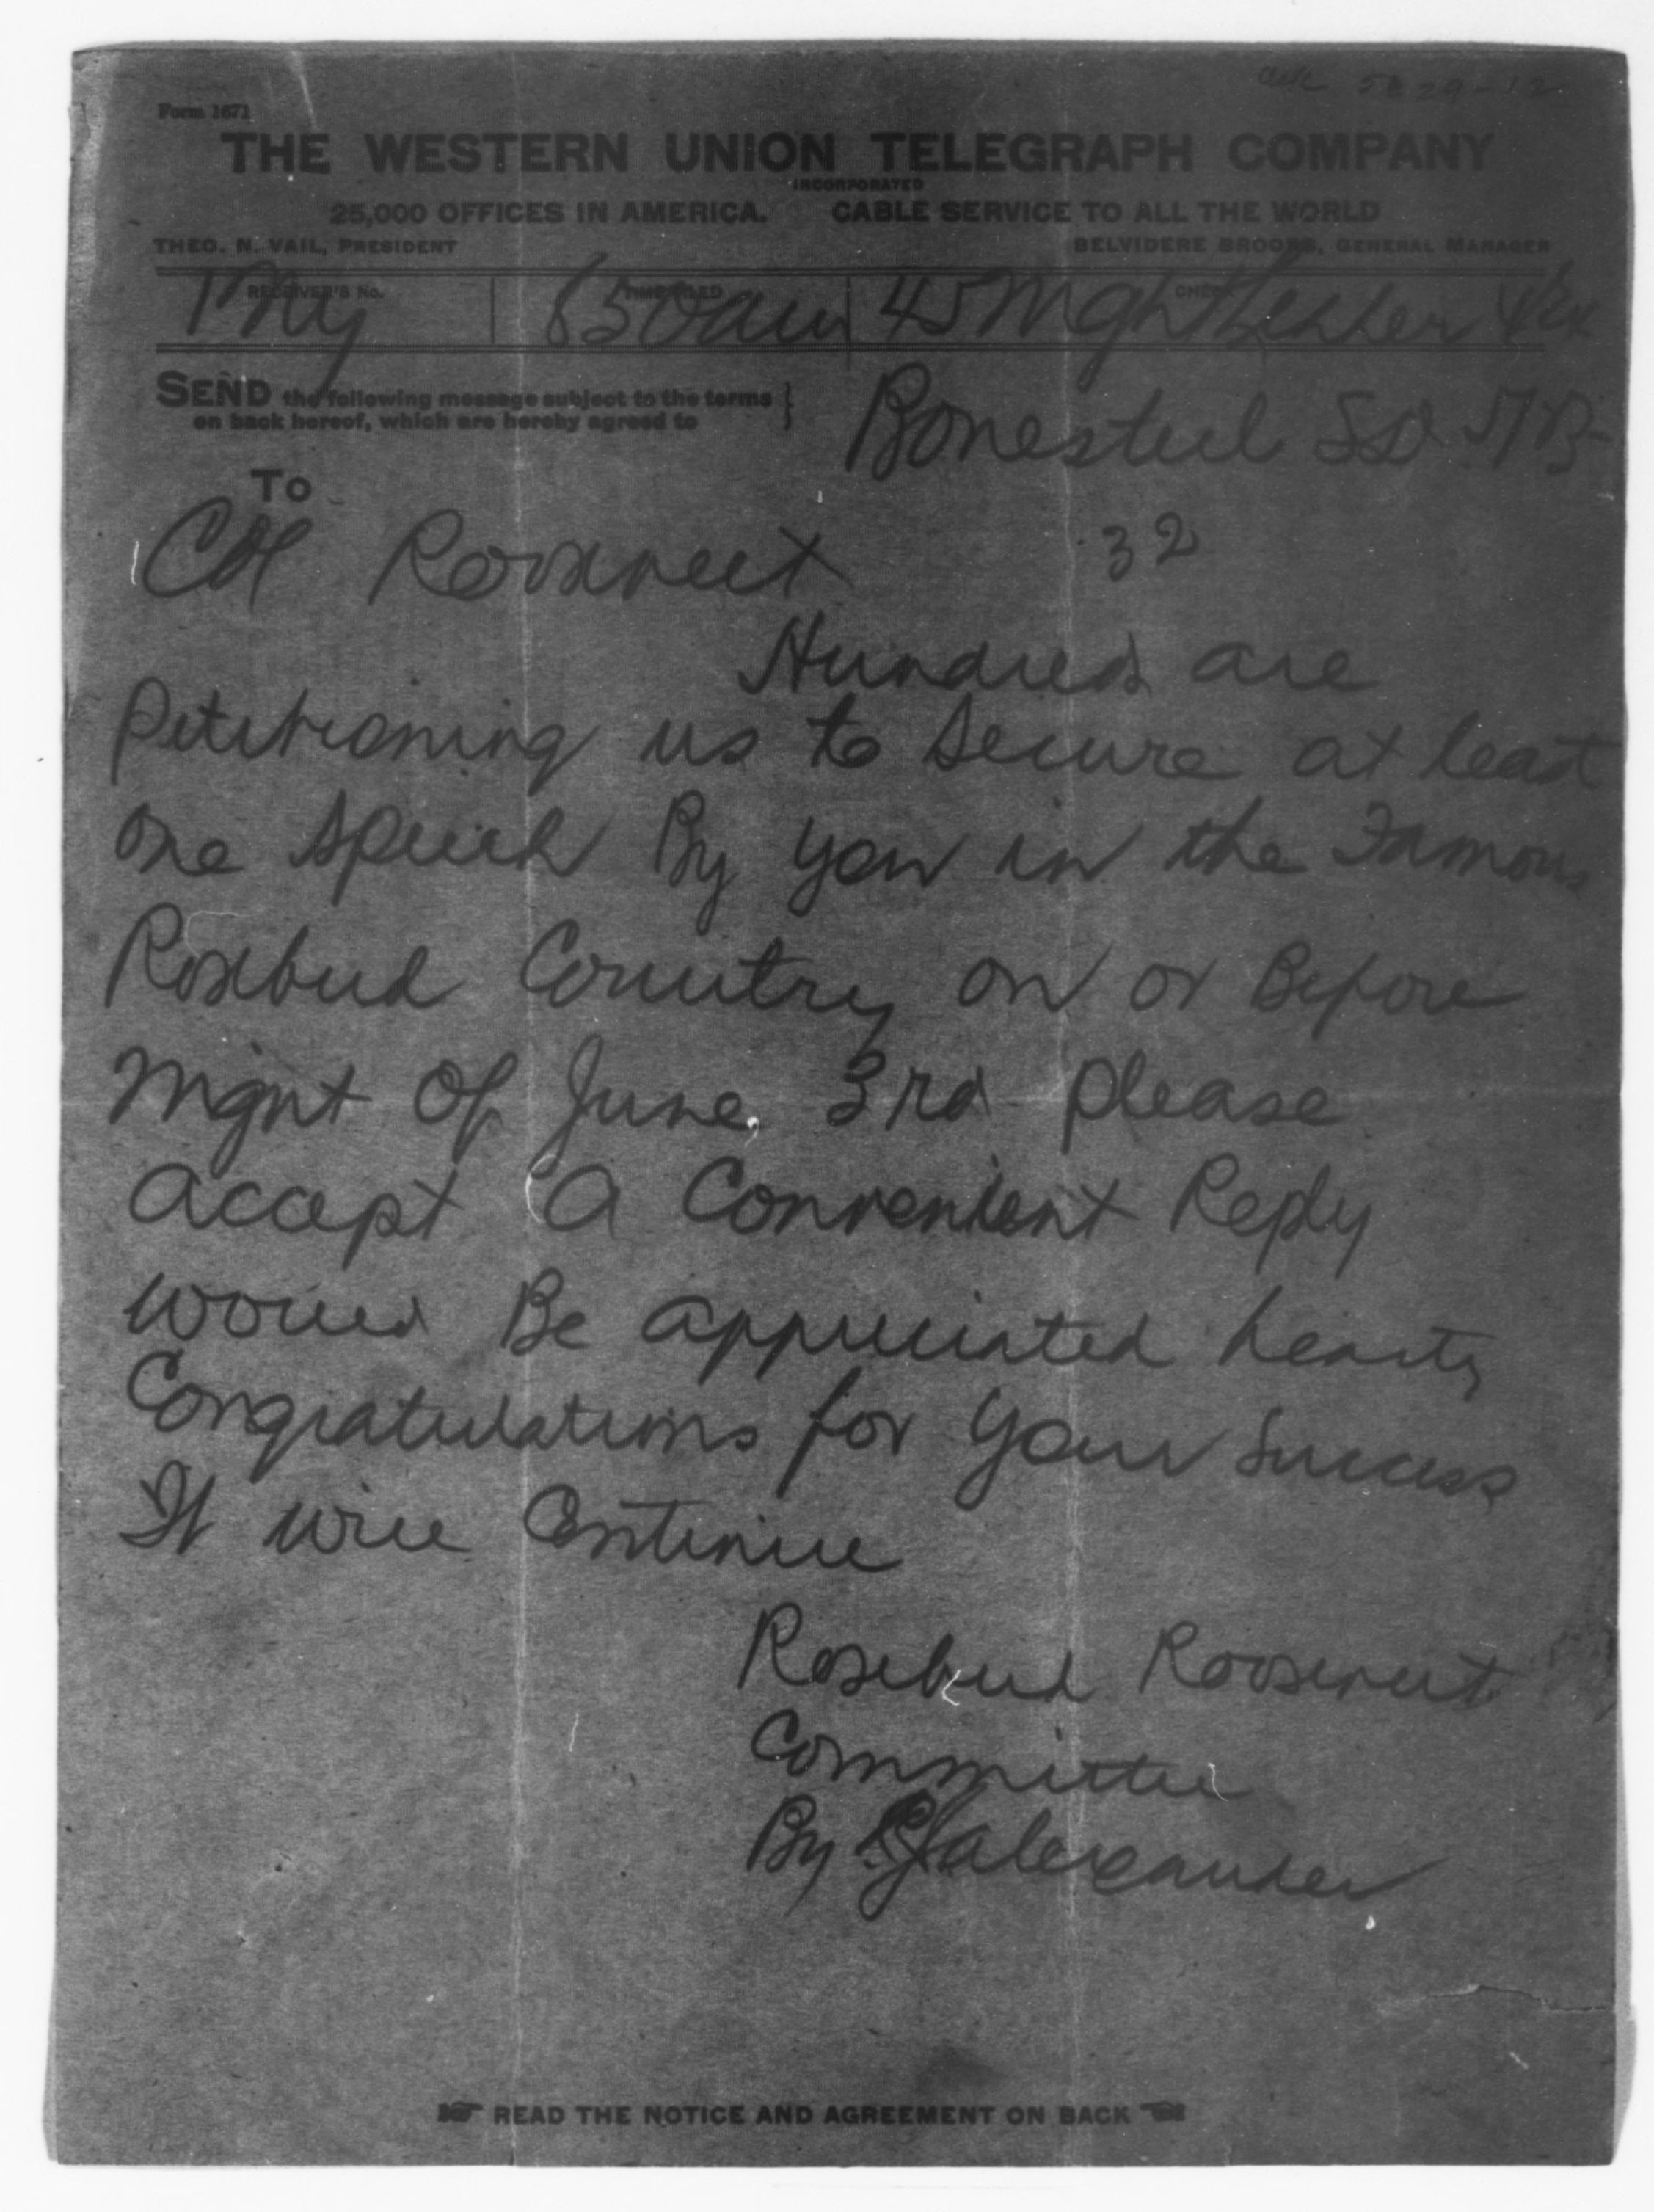 ack 5-29-12
Form 1671
THE WESTERN UNION TELEGRAPH COMPANY
INCORPORATED
25,000 OFFICES IN AMERICA. CABLE SERVICE TO ALL THE WORLD
THEO. N. VAIL, PRESIDENT BELVIDERE BROOKS, GENERAL MANAGER
RECEIVER'S No. TIME FILED CHECK
650am 45 Night Letter
SEND the following message subject to the terms
on back hereof, which are hereby agreed to
Bonesteel SD
To
Col Roosevelt 32
Hundred are
Petitioning us to secure at least
one speech By you in the Famous
Rosebud Country on or Before
Night of June 3rd please
accept a Convenient Reply
would Be appreciated hearty
Congratulations for your success
It will Continue
Rosebud Roosevelt
Committee
By Alexander
READ THE NOTICE AND AGREEMENT ON BACK